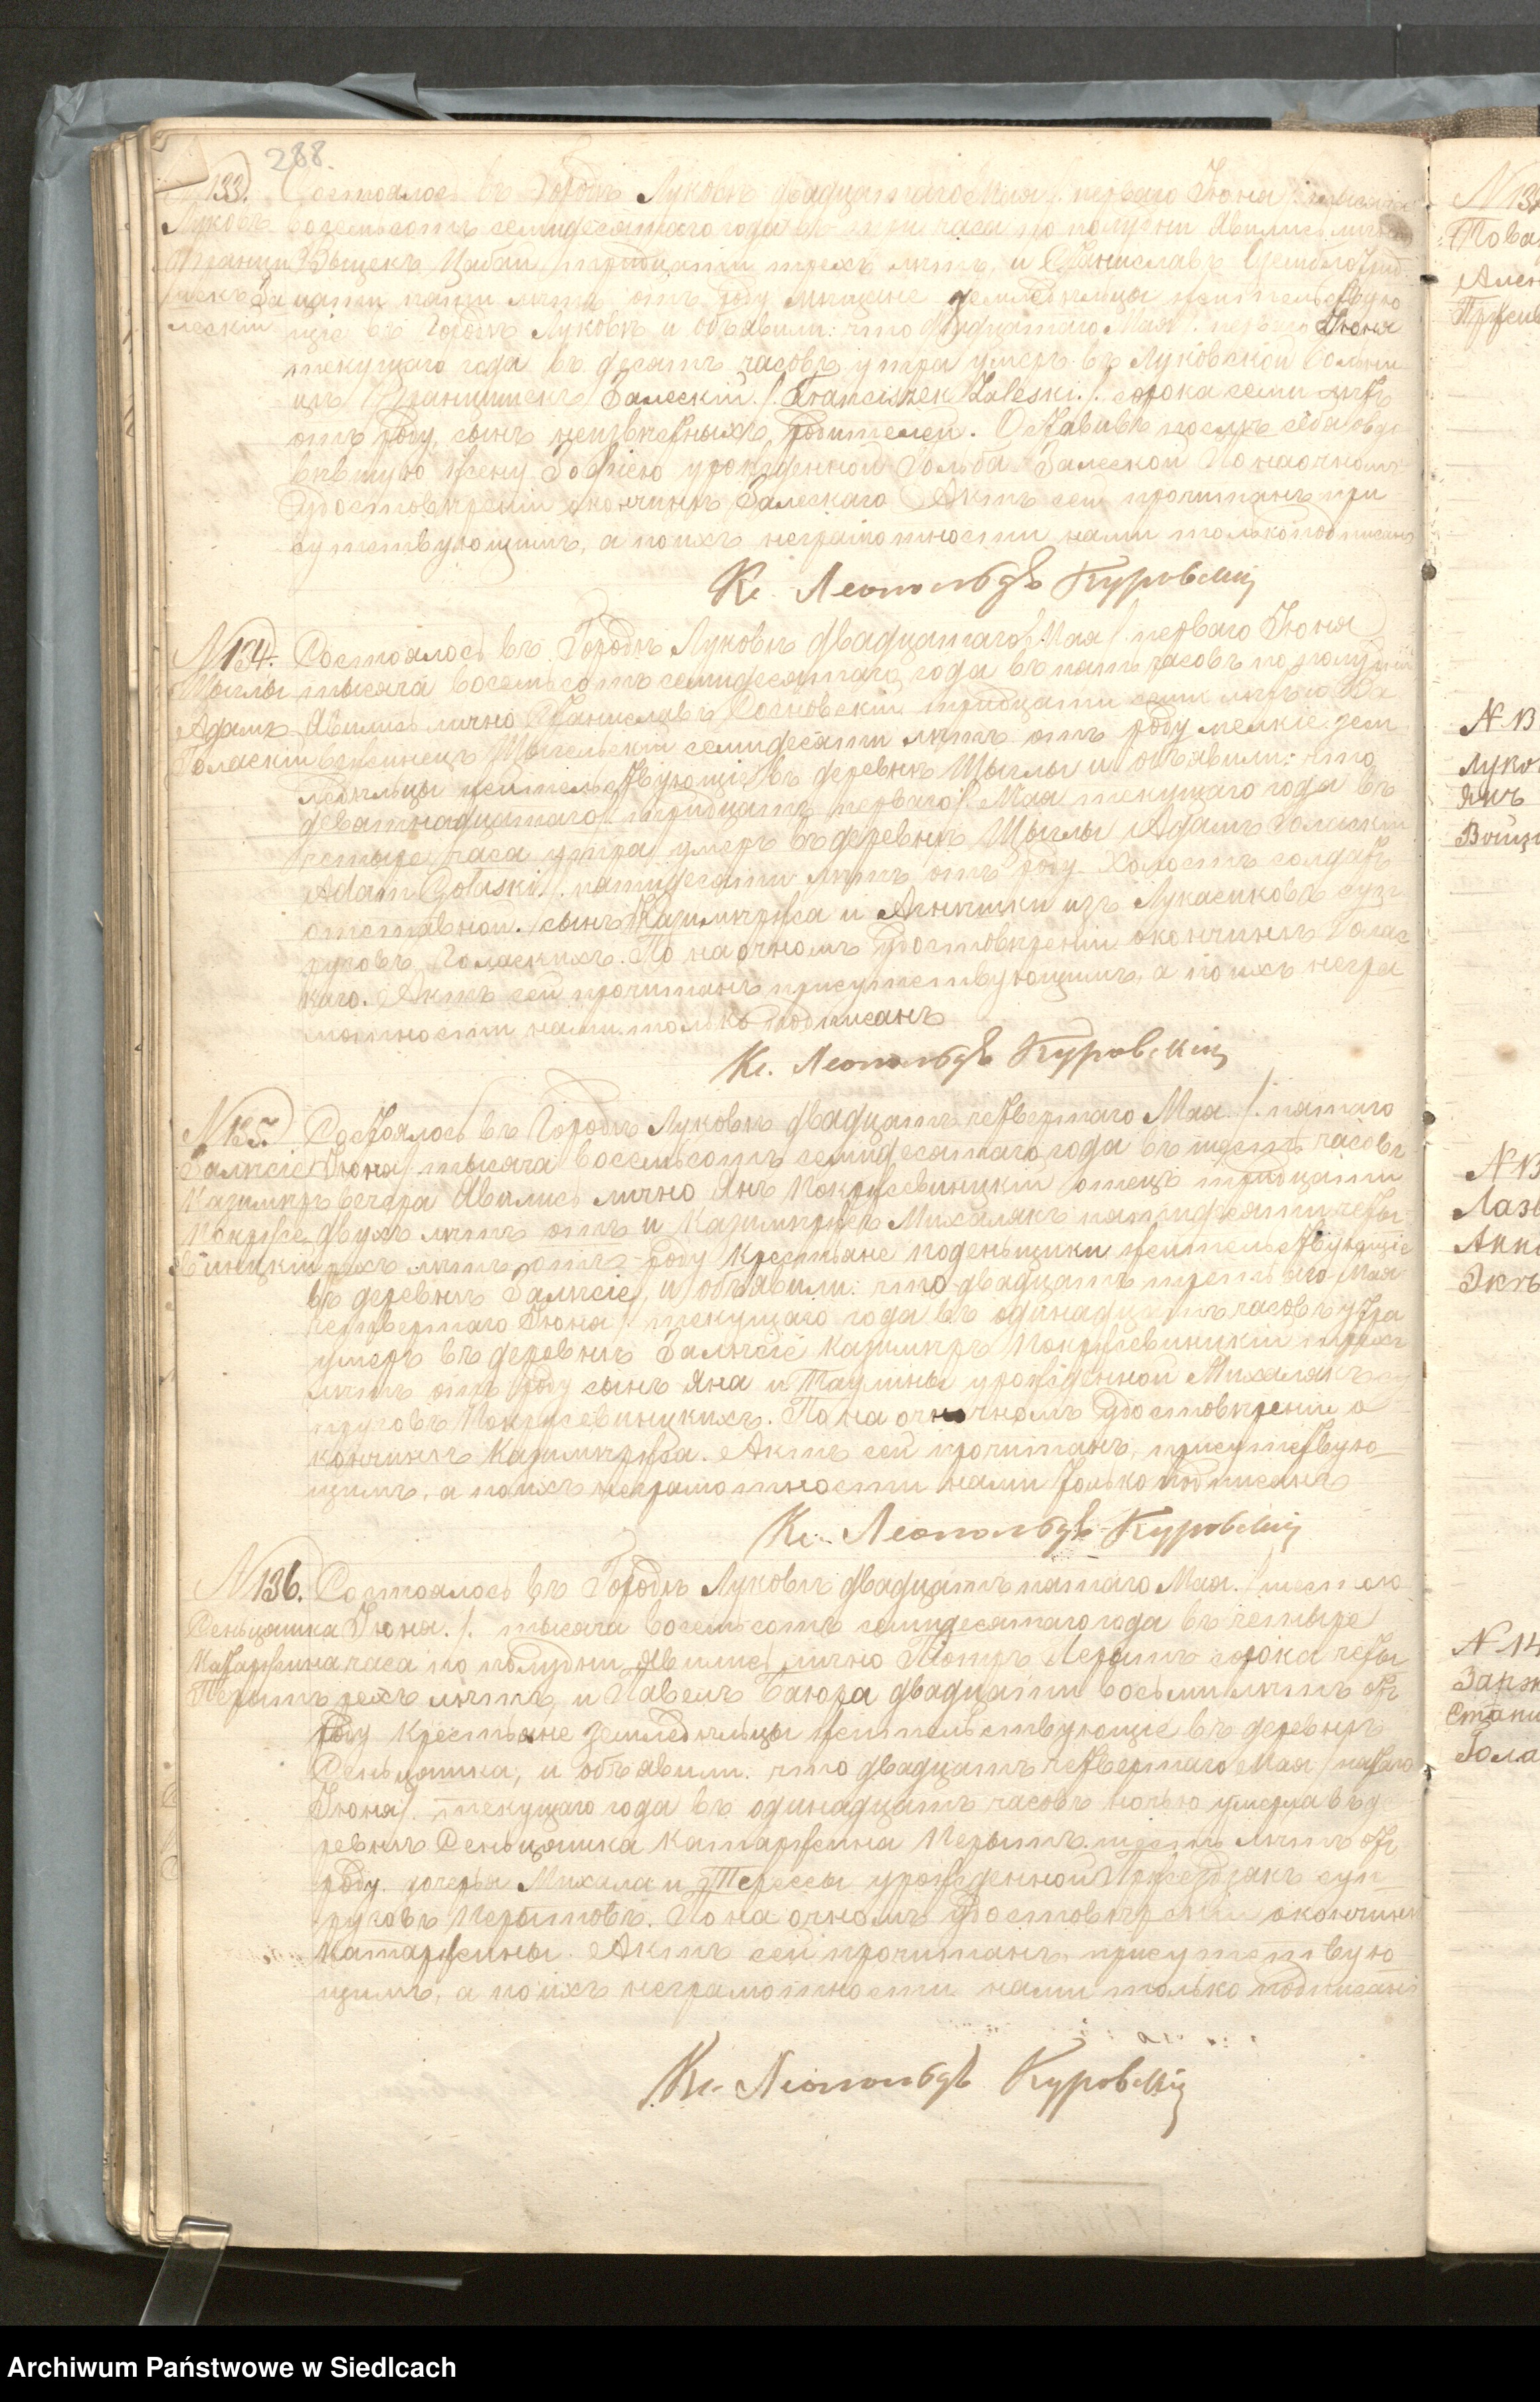 288.
133. Состоялось въ Городѣ Луковѣ двадцатаго Мая /: перваго Іюня :/ тысяча
Луковъ восемьсотъ семидесятаго года въ три часа по полудни Явились лично
Францишекъ Войцехъ Цабай тридцати трехъ лѣтъ, и Станиславъ
Залескій цати пяти лѣтъ отъ роду мѣщане земледѣльцы жительствую
щіе въ Городѣ Луковѣ и объявили: что двадцатаго Мая /: перваго Іюня
текущаго года въ десять часовъ утра умеръ въ Луковской больни
цѣ Францишекъ Залескій /: Franciszek Zaleski :/ сорока семи лѣтъ
отъ роду, сынъ неизвѣстныхъ родителей. Оставивъ послѣ себя овдо
вѣвшую жену Зофію урожденной Голыба Залеской По наочномъ
удостовѣреніи окончинѣ Залескаго Актъ сей прочитанъ при
сутствующимъ, а по ихъ неграмотности нами только подписанъ
Кс. Леопольдъ Куровскій
N 134. Состоялось въ Городѣ Луковѣ двадцатаго Мая /: перваго Іюня
Щыглы тысяча восемьсотъ семидесятаго года въ пять часовъ по полудни
Адамъ Явились лично Станиславъ Сосновскій тридцати семи лѣтъ и Ва
Голаскій вжинецъ Щыгельскій семидесяти лѣтъ отъ роду мелкіе зем
ледѣльцы жительствующіе въ деревнѣ Щыглы и объявили: что
девятнадцатаго /: тридцать перваго /: Мая текущаго года въ
четыре часа утра умеръ въ деревнѣ Щыглы Адамъ Голаскій
Adam Gołaski /: пятидесяти лѣтъ отъ роду Холостъ солдатъ
отставной. /: сынъ Казимѣржа и Агнѣшки изъ Лукасиковъ суп
руговъ Голаскихъ. По наочномъ удостовѣреніи окончинѣ Голас
каго. Актъ сей прочитанъ присутствующимъ, а по ихъ негра
мотности нами только подписанъ
Кс. Леопольдъ Куровскій
N 135. Состоялось въ Городѣ Луковѣ двадцать четвертаго Мая /: пятаго
Залѣсіе Іюня /: тысяча восемьсотъ семидесятаго года въ шесть часовъ
Казимѣръ вечера Явились лично Янъ Покрживницкій отецъ тридцати
Покрже двухъ лѣтъ отъ и Казимѣржъ Михалякъ пятидесяти четы
вницкій рехъ лѣтъ отъ роду крестьяне поденьщики жительствующіе
въ деревнѣ Залѣсіе, и объявили: что двадцать третьяго Мая
четвертаго Іюня /: текущаго года въ одинадцать часовъ утра
умеръ въ деревнѣ Залѣсіе Казимѣръ Покржевницкій трехъ
лѣтъ отъ роду сынъ Яна и Паулины урожденной Михалякъ су
пруговъ Покржевницкихъ. По на очночномъ удостовѣреніи о
кончинѣ Казимѣржа. Актъ сей прочитанъ, присутствую
щимъ, а по ихъ неграмотности нами только подписанъ
Кс. Леопольдъ Куровскій
N 136. Состоялось въ Городѣ Луковѣ двадцать пятаго Мая. /: шестого
Сеньцяшка Іюня. /: тысяча восемьсотъ семидесятаго года въ четыре
Катаржина часа по полудни Явились лично Піотръ Перытъ сорока четы
Перытъ рехъ лѣтъ, и Павелъ Баюра двадцати восьми лѣтъ отъ
роду крестьяне земледѣльцы жительствующіе въ деревнѣ
Сеньцяшка, и объявили. что двадцать четвертаго Мая /: пятаго
Іюня /: текущаго года въ одинадцать часовъ ночью умерла въ де
ревнѣ Сеньцяшка Катаржина Перытъ шесть лѣтъ отъ
роду дочерья Михала и Терессы урожденной суп
руговъ Перытовъ. По на очномъ удостовѣреніи окончинѣ
Катаржины. Актъ сей прочитанъ, присутствую
щимъ, а по ихъ неграмотности нами только подписанъ
Кс. Леопольдъ Куровскій
Archiwum Państwowe w Siedlcach